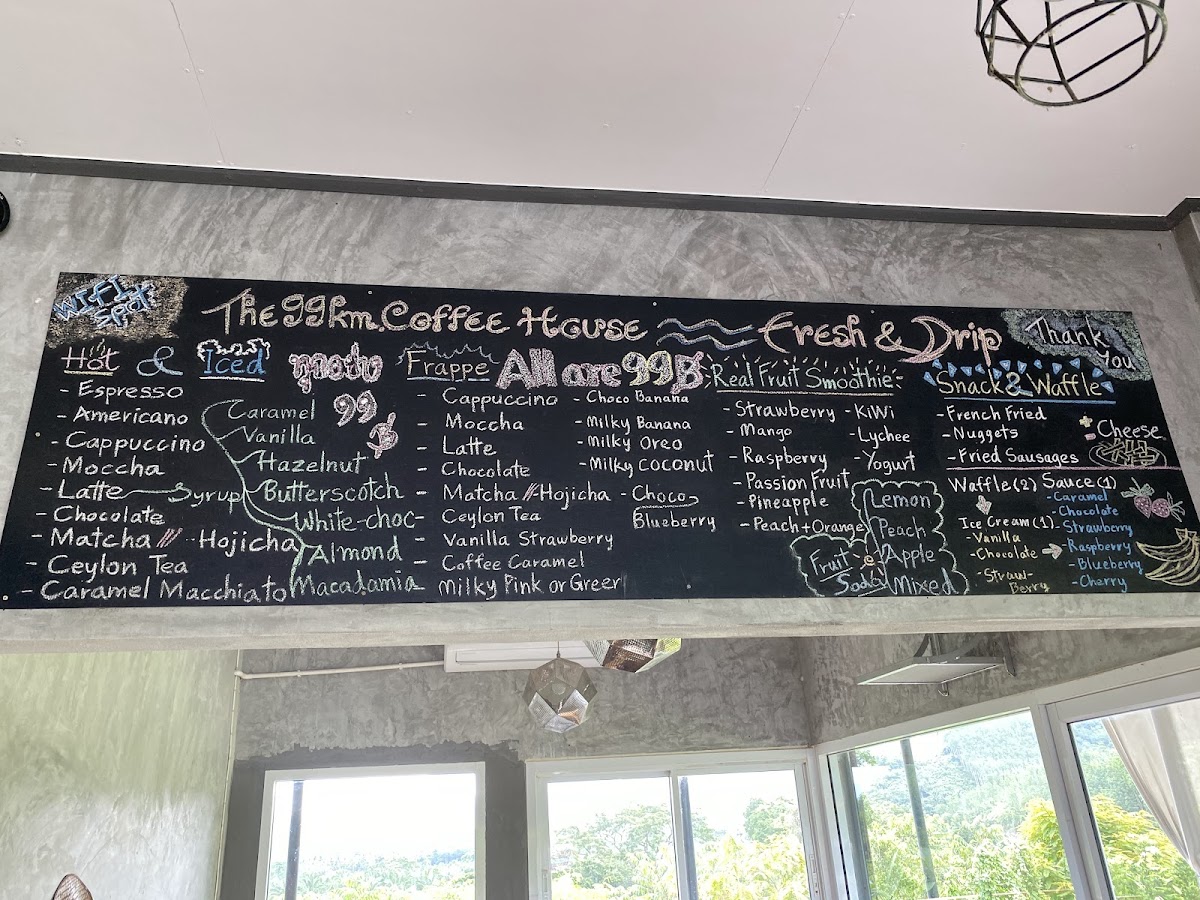 WI-FI
Spot
The 99 km. Coffee House
Fresh & Drip
Thank
You
Hot & Iced
ทุกอย่าง
99
- Espresso
- Americano
- Cappuccino
- Moccha
- Latte
- Chocolate
- Matcha // - Hojicha
- Ceylon Tea
- Caramel Macchiato
Syrup
Caramel
Vanilla
Hazelnut
Butterscotch
White-choc
Almond
Macadamia
Frappe
All are 99฿
- Cappuccino
- Moccha
- Latte
- Chocolate
- Matcha // - Hojicha
- Ceylon Tea
- Vanilla Strawberry
- Coffee Caramel
- Milky Pink or Green
- Choco Banana
- Milky Banana
- Milky Oreo
- Milky Coconut
- Choco
Blueberry
Real Fruit Smoothie
- Strawberry
- Mango
- Raspberry
- Passion Fruit
- Pineapple
- Peach+Orange
- Kiwi
- Lychee
- Yogurt
Fruit
Soda
Lemon
Peach
Apple
Mixed
Snack & Waffle
- French Fried
- Nuggets
- Fried Sausages
+ Cheese
Waffle(2) Sauce(1)
Ice Cream (1)
- Vanilla
- Chocolate
- Straw-
Berry
- Caramel
- Chocolate
- Strawberry
- Raspberry
- Blueberry
- Cherry